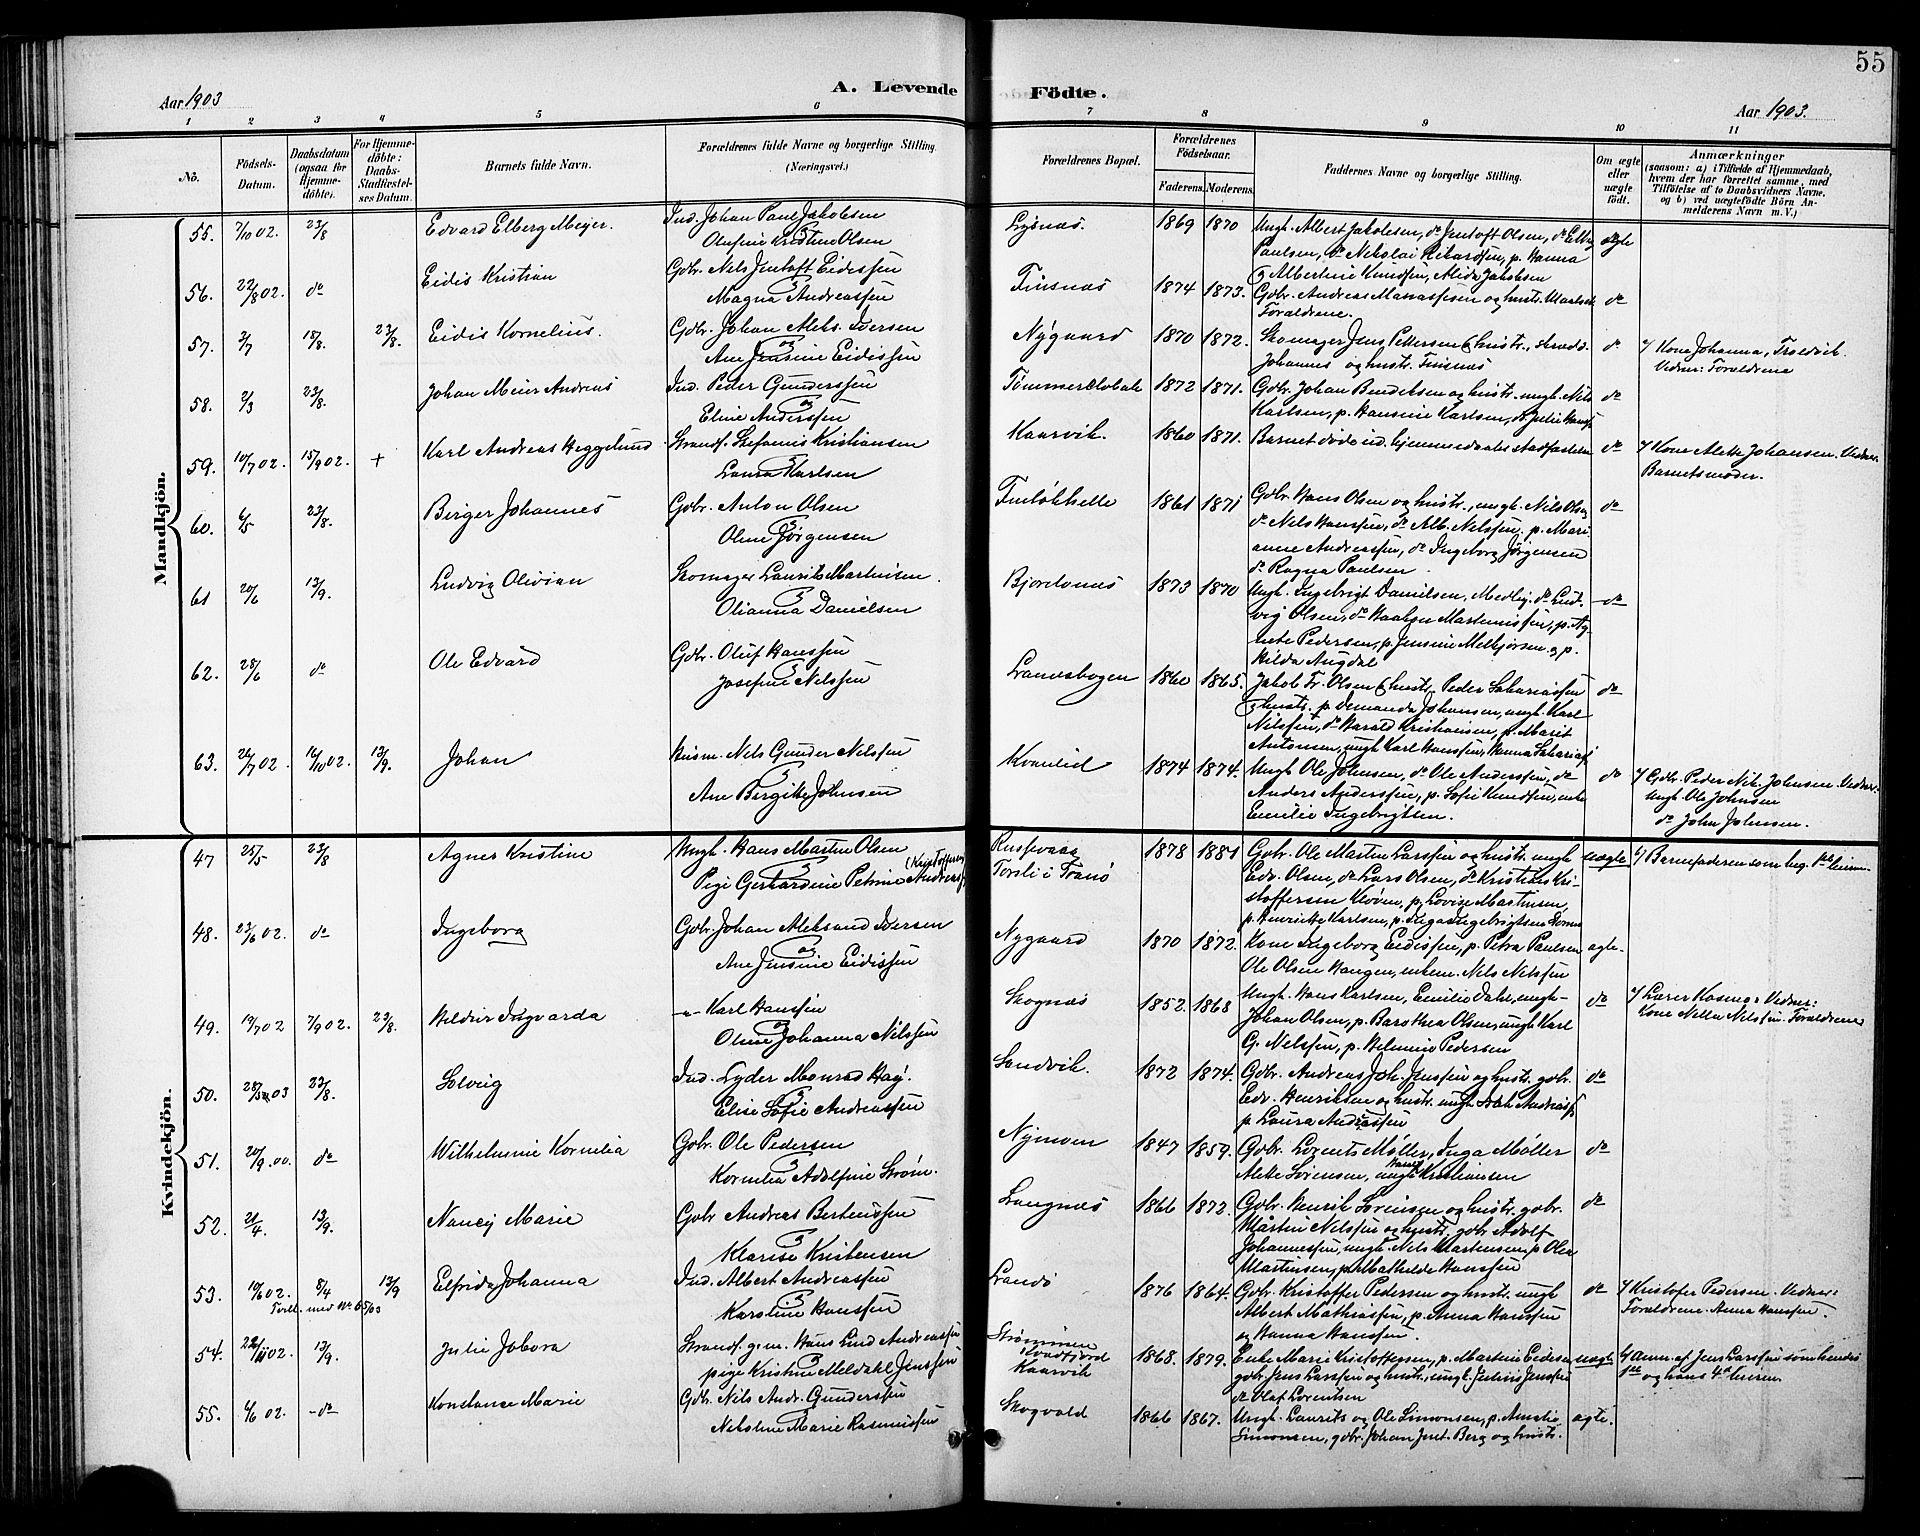 55
Aar 1903
A. Levende Födte.
Aar 1903.
1 2 3 4 5 6 7 8 9 10 11
Nö.
Födsels-Datum.
Daabsdatum (ogsaa for Hjemmedöbte).
For Hjemmedöbte: Daabs-Stadfæstelses Datum.
Barnets fulde Navn.
Forældrenes fulde Navne og borgerlige Stilling.
(Næringsvei.)
Forældrenes Bopæl.
Forældrenes Födselsaar.
Faderens. Moderens.
Faddernes Navne og borgerlige Stilling.
Om ægte eller uægte födt.
Anmærkninger
(saasom: a) i Tilfælde af Hjemmedaab, hvem der har forrettet samme, med Tilföielse af to Daabsvidners Navne, og b) ved uægtefödte Börn Anmelderens Navn m. V.)
Mandkjön.
55. 7/10 02. 23/8 Edvard Elberg Meyer. Ind. Johan Paul Jakobsen
Olufine Kristine Olsen
Lysnæs. 1869 1870 Ungk. Albert Jakobsen, do Jentoft Olsen, do
Paulsen, do Nikolai Rikardsen, p. Hanna
Albertine Knudsen, Alida Jakobsen
ægte
56. 22/8 02. do Eidis Kristian Gdbr. Nils Jentoft Eidissen
og
Magna Andreassen
Finsnæs 1874 1873. Gdbr. Andreas Manassesen og hustr.
Forældrene.
do
57. 3/7 15/8. 23/8. Eidis Kornelius. Gdbr. Johan Aleks. Iversen
og
Ane Jensine Eidissen
Nygaard 1870 1872. Skomager Jens Pettersen & hustr.,
Johannes og hustr. Finsnæs
do
Kone Johanna,
Vidner: Forældrene
58. 2/3 23/8. Johan Meier Andreas Ind. Peder Gunderssen
og
Eline Anderssen
1872 1871. Gdbr. Johan Bendiksen og hustr. ungk. Nils
Karlsen, p. Hansine Karlsen,
do
59. 10/7 02. 15/9 02. + Karl Andreas Heggelund Strandf. Stefanus Kristiansen
og
Laura Karlsen
Kaarvik. 1860 1871. Barnet döde ind. hjemmedaabs stadfæstelse
do
Kone Alette Johansen. Vidner:
Barnets moder.
60. 6/5 23/8. Birger Johannes Gdbr. Anton Olsen
og
Oline Jörgensen
1861 1871 Gdbr. Hans Olsen og hustr., ungk. Nils Olsen
do Nils Hanssen, do Alb. Nilssen, p. Mari-
anne Andreassen, do Ingeborg Jörgensen
do Ragna Paulsen.
do
61 20/6 13/9. Ludvig Olivian Skomager Laurits Martinisen.
og
Olianna Danielsen
Bjorelvnæs 1873 1870 Ungk. Ingebrigt Danielsen, Medby. do Lud-
vig Olsen, do Haakon Martinissen, p. Ag-
nete Pedersen, p. Jensine Melkjorsen og p.
Hilda Augdal
do
62. 28/6 do Ole Edvard Gdbr. Oluf Hanssen
og
Josefine Nilssen
Landsbogen 1860 1865. Jakob Fr. Olsen & hustr. Peder Sakariassen
& hustr. p. Amanda Johansen, ungk. Karl
Nilssen, do Harald Kristiansen, p. Marit
Antonsen, ungk. Karl Hanssen, Hanna
do
63. 26/7 02 16/10 02. 13/9. Johan Husm. Nils Gunder Nilssen
og
Ane Birgitte Johnsen
Kvanlid 1874 1874. Ungk. Ole Johnsen, do Ole Anderssen, do
Anders Anderssen, p. Sofie Knudsen, enke
Emilie Ingebrigtsen
do
Gdbr. Peder Nik. Johnsen. Vidner:
ungk. Ole Johnsen
do John Johnsen.
Kvindekjön.
47 25/5 23/8 Agnes Kristine Ungk. Hans Martin Olsen
og
Pige Gerhardine Petrine Andreas
Rusvaag
Torsli i Tranö
1878 1881 Gdbr. Ole Martin Larssen og hustr. ungk
Edv. Olsen, do Lars Olsen, do Kristian Kri-
stoffersen Klöven, p. Lovise Martinsen,
p. Henriette Karlsen, p. Inga Ingebrigtsen
uægte
Barnefaderen som beg. 1ste leierm.
48. 23/6 02. do Ingeborg Gdbr. Johan Aleksand Iversen
og
Ane Jensine Eidissen
Nygaard 1870 1872. Kone Ingeborg Eidissen, p. Petra Paulsen
Ole Olsen Haugen, enkem. Nils Nilssen
ægte.
49. 19/7 02 7/9 02. 23/8. Hildur Ingvarda Karl Hanssen
og
Oline Johanna Nilssen
Skognæs 1852. 1868 Ungk. Hans Karlsen, Emilie Dahl, ungk.
Johan Olsen, p. Barothea Olsen, ungk Karl
G. Nilssen, p. Helmine Pedersen
do
Lærer Vidner:
Nella Nilssen. Forældrene
50. 23/8. Solveig Ind. Lyder Monrad Haÿ.
og
Elise Sofie Andreassen
Sandvik. 1872 1874. Gdbr. Andreas Joh. Jenssen og hustr. gdbr.
Edv. Henriksen og hustr. ungk. Andreass.
p. Laura Andreassen
do
51. 20/9.00. do Wilhelmine Kornelia Gdbr. Ole Pedersen
og
Kornelia Adolfine Ström.
Nymoen 1847 1859. Gdbr. Lorents Möller, Inga Möller
Alette Sörensen, ungk Kristiansen
do
52. 21/4. 13/9. Nancy Marie Gdbr Andreas Berteussen
og
Klarise Kristensen
Langnæs 1866 1872. Gdbr. Henrik Sörensen og hustr. gdbr.
Martin Nilssen og hustr. gdbr. Adolf
Johannessen, ungk. Nils Martensen, p. Olea
Martinsen, p. Mathilde Hanssen
do
53. 10/6 02. 8/4 13/9 Elfrida Johanna Ind. Albert Andreassen
og
Karoline Hanssen
Tvill. med No 65/03
1876 1864. Gdbr. Kristoffer Pedersen og hustr. ungk
Albert Mathiassen, p. Anna Hanssen
og Hanna Hanssen.
do
Kristofer Pedersen. Vidner:
Forældrene. Anna Hanssen.
54. 13/9. Julie Jobora Strandf. g.m. Hans Lind Andreassen
og
pige Kristine Meldahl Jenssen
Kvædfjord
Kaarvik
1868. 1879. Enke Marie Kristoffersen, p. Martine Eidesen
gdbr. Jens Larssen og hustr., ungk. Jenssen
do Olaf Lorentsen
uægte
Anm. af Jens Larssen som hendes
1ste og hans 4de leierm
55. 6/6 02. do Konstance Marie Gdbr. Nils Andr. Gunderssen
og
Nikoline Marie Rasmussen
Skogvold 1866 1867. Ungk. Laurits og Ole Simonsen, p. Amalie
Simonsen, gdbr. Johan Jent. Berg og hustr.
ægte.